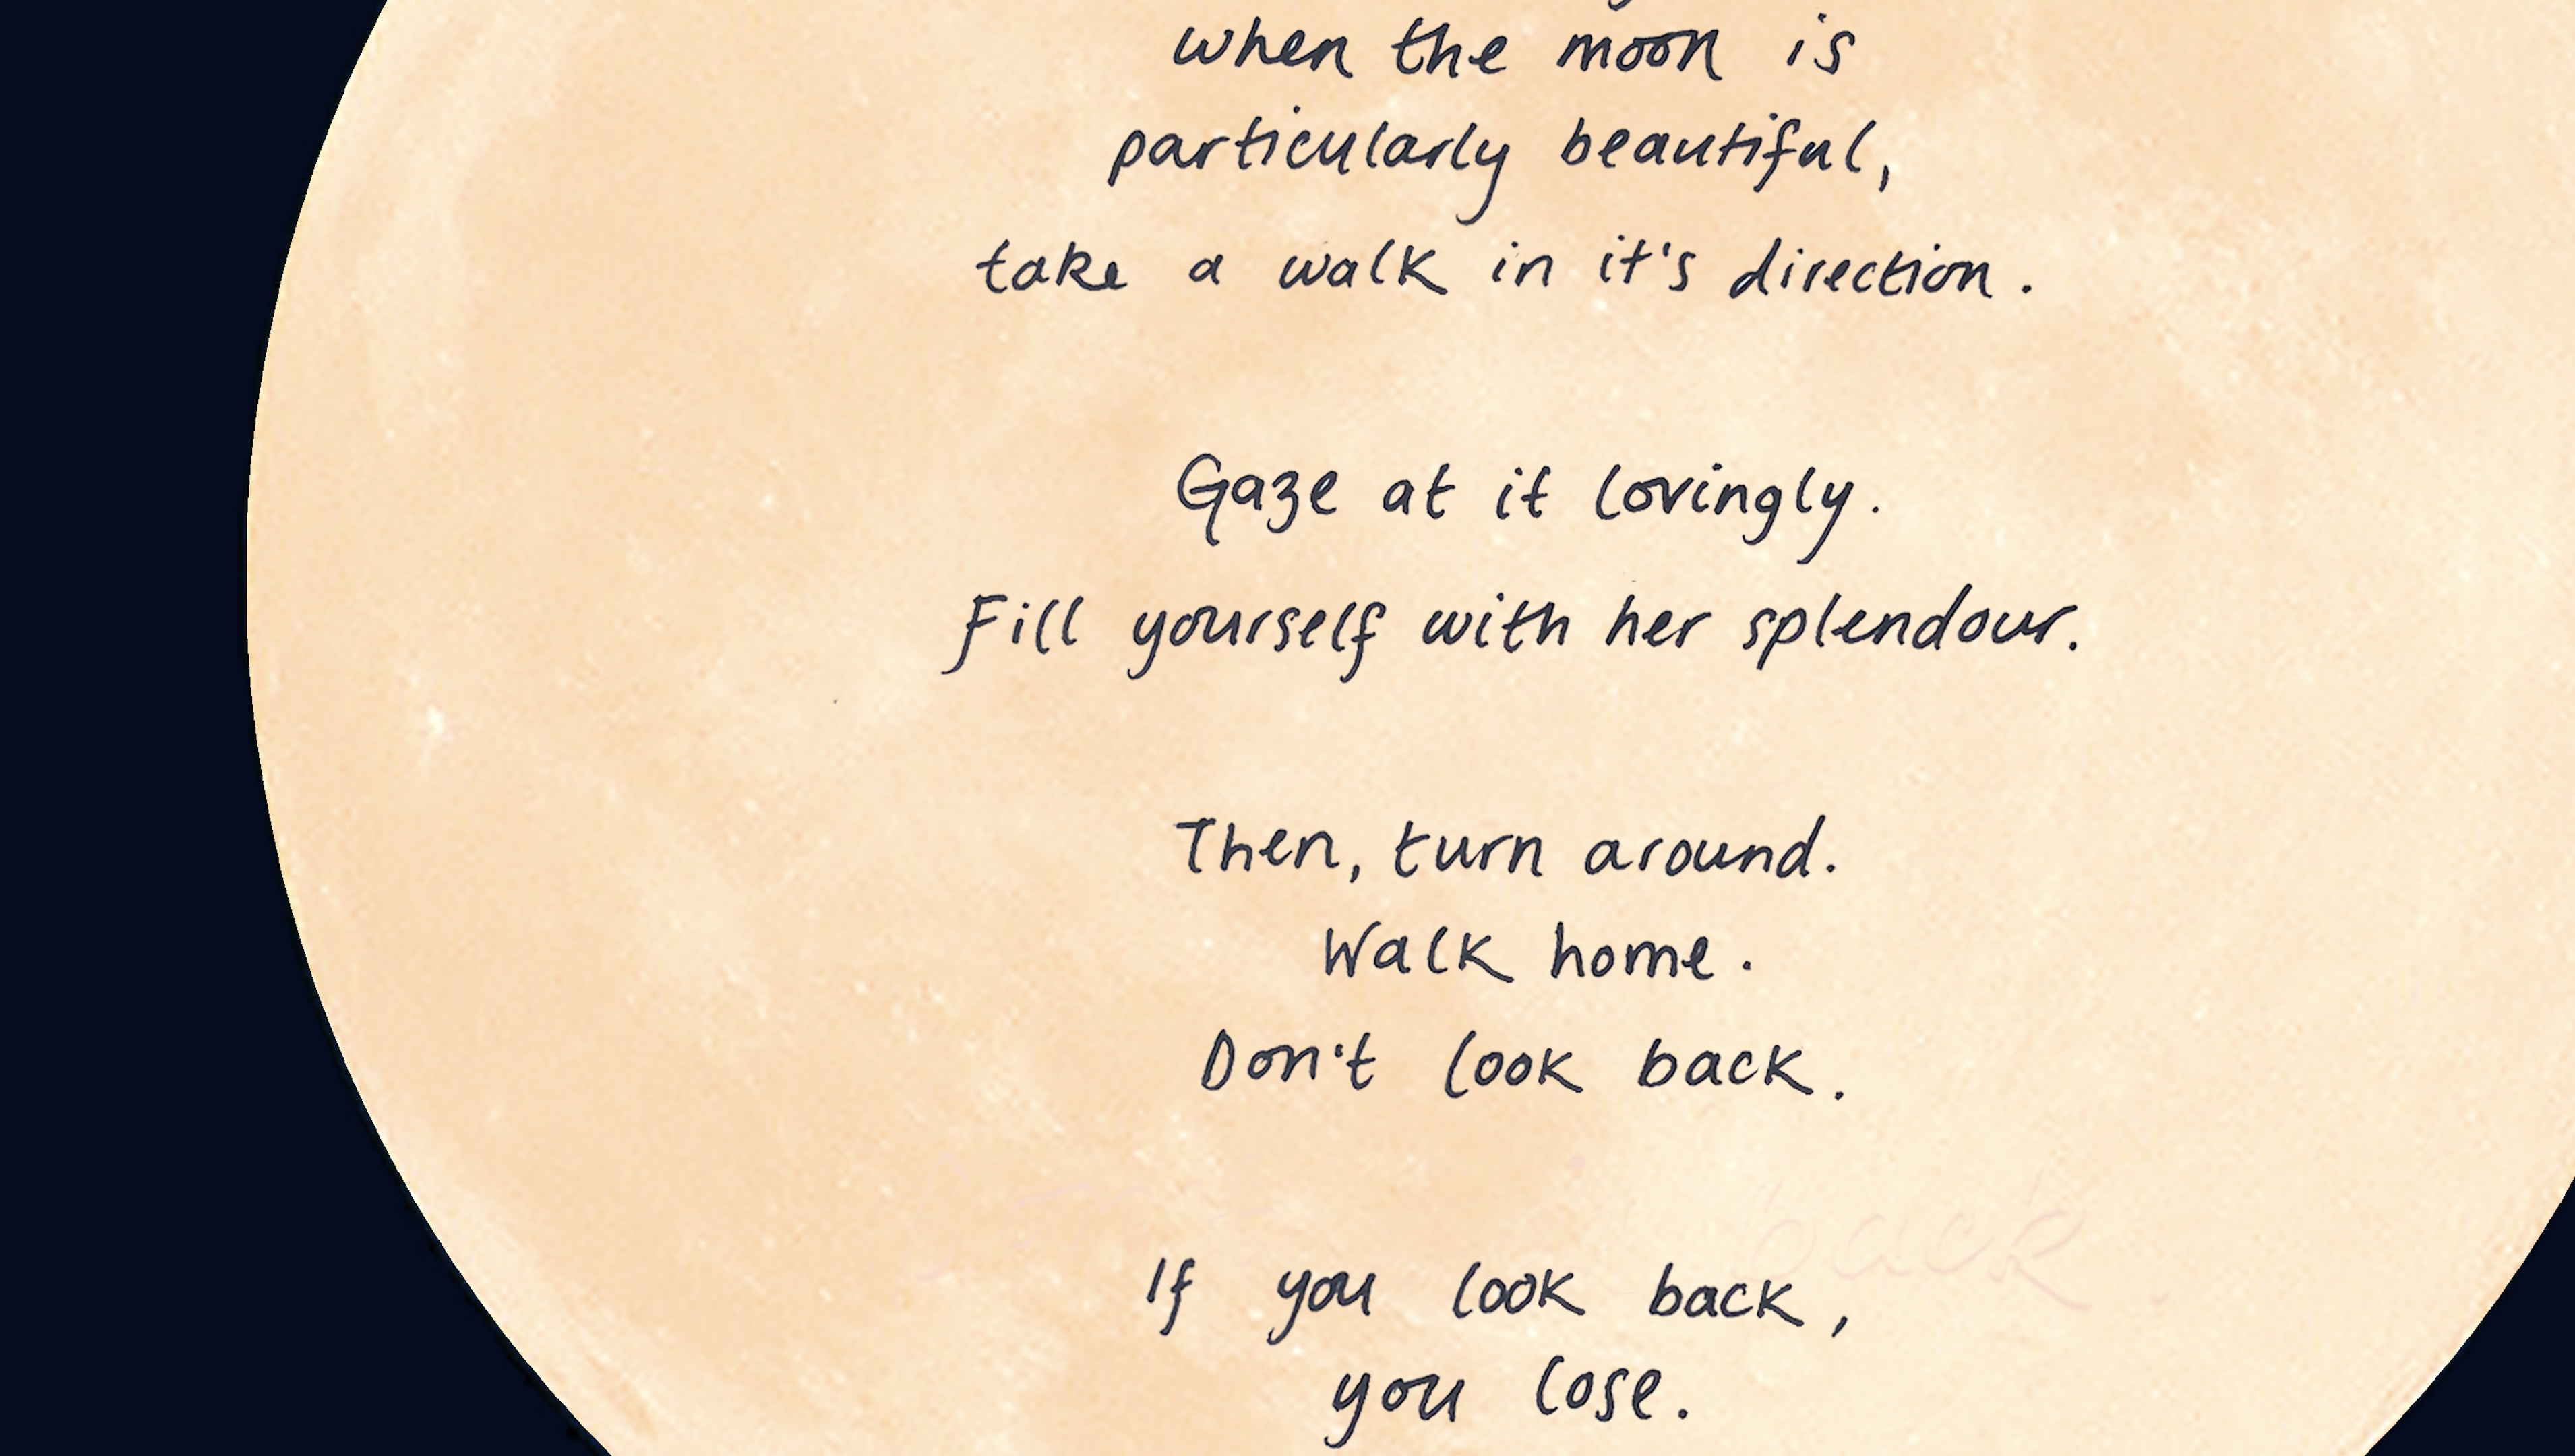 when the moon is
particularly beautiful,
take a walk in it's direction.
Gaze at it lovingly.
Fill yourself with her splendour.
Then, turn around.
Walk home.
Don't look back.
back.
If you look back,
you lose.